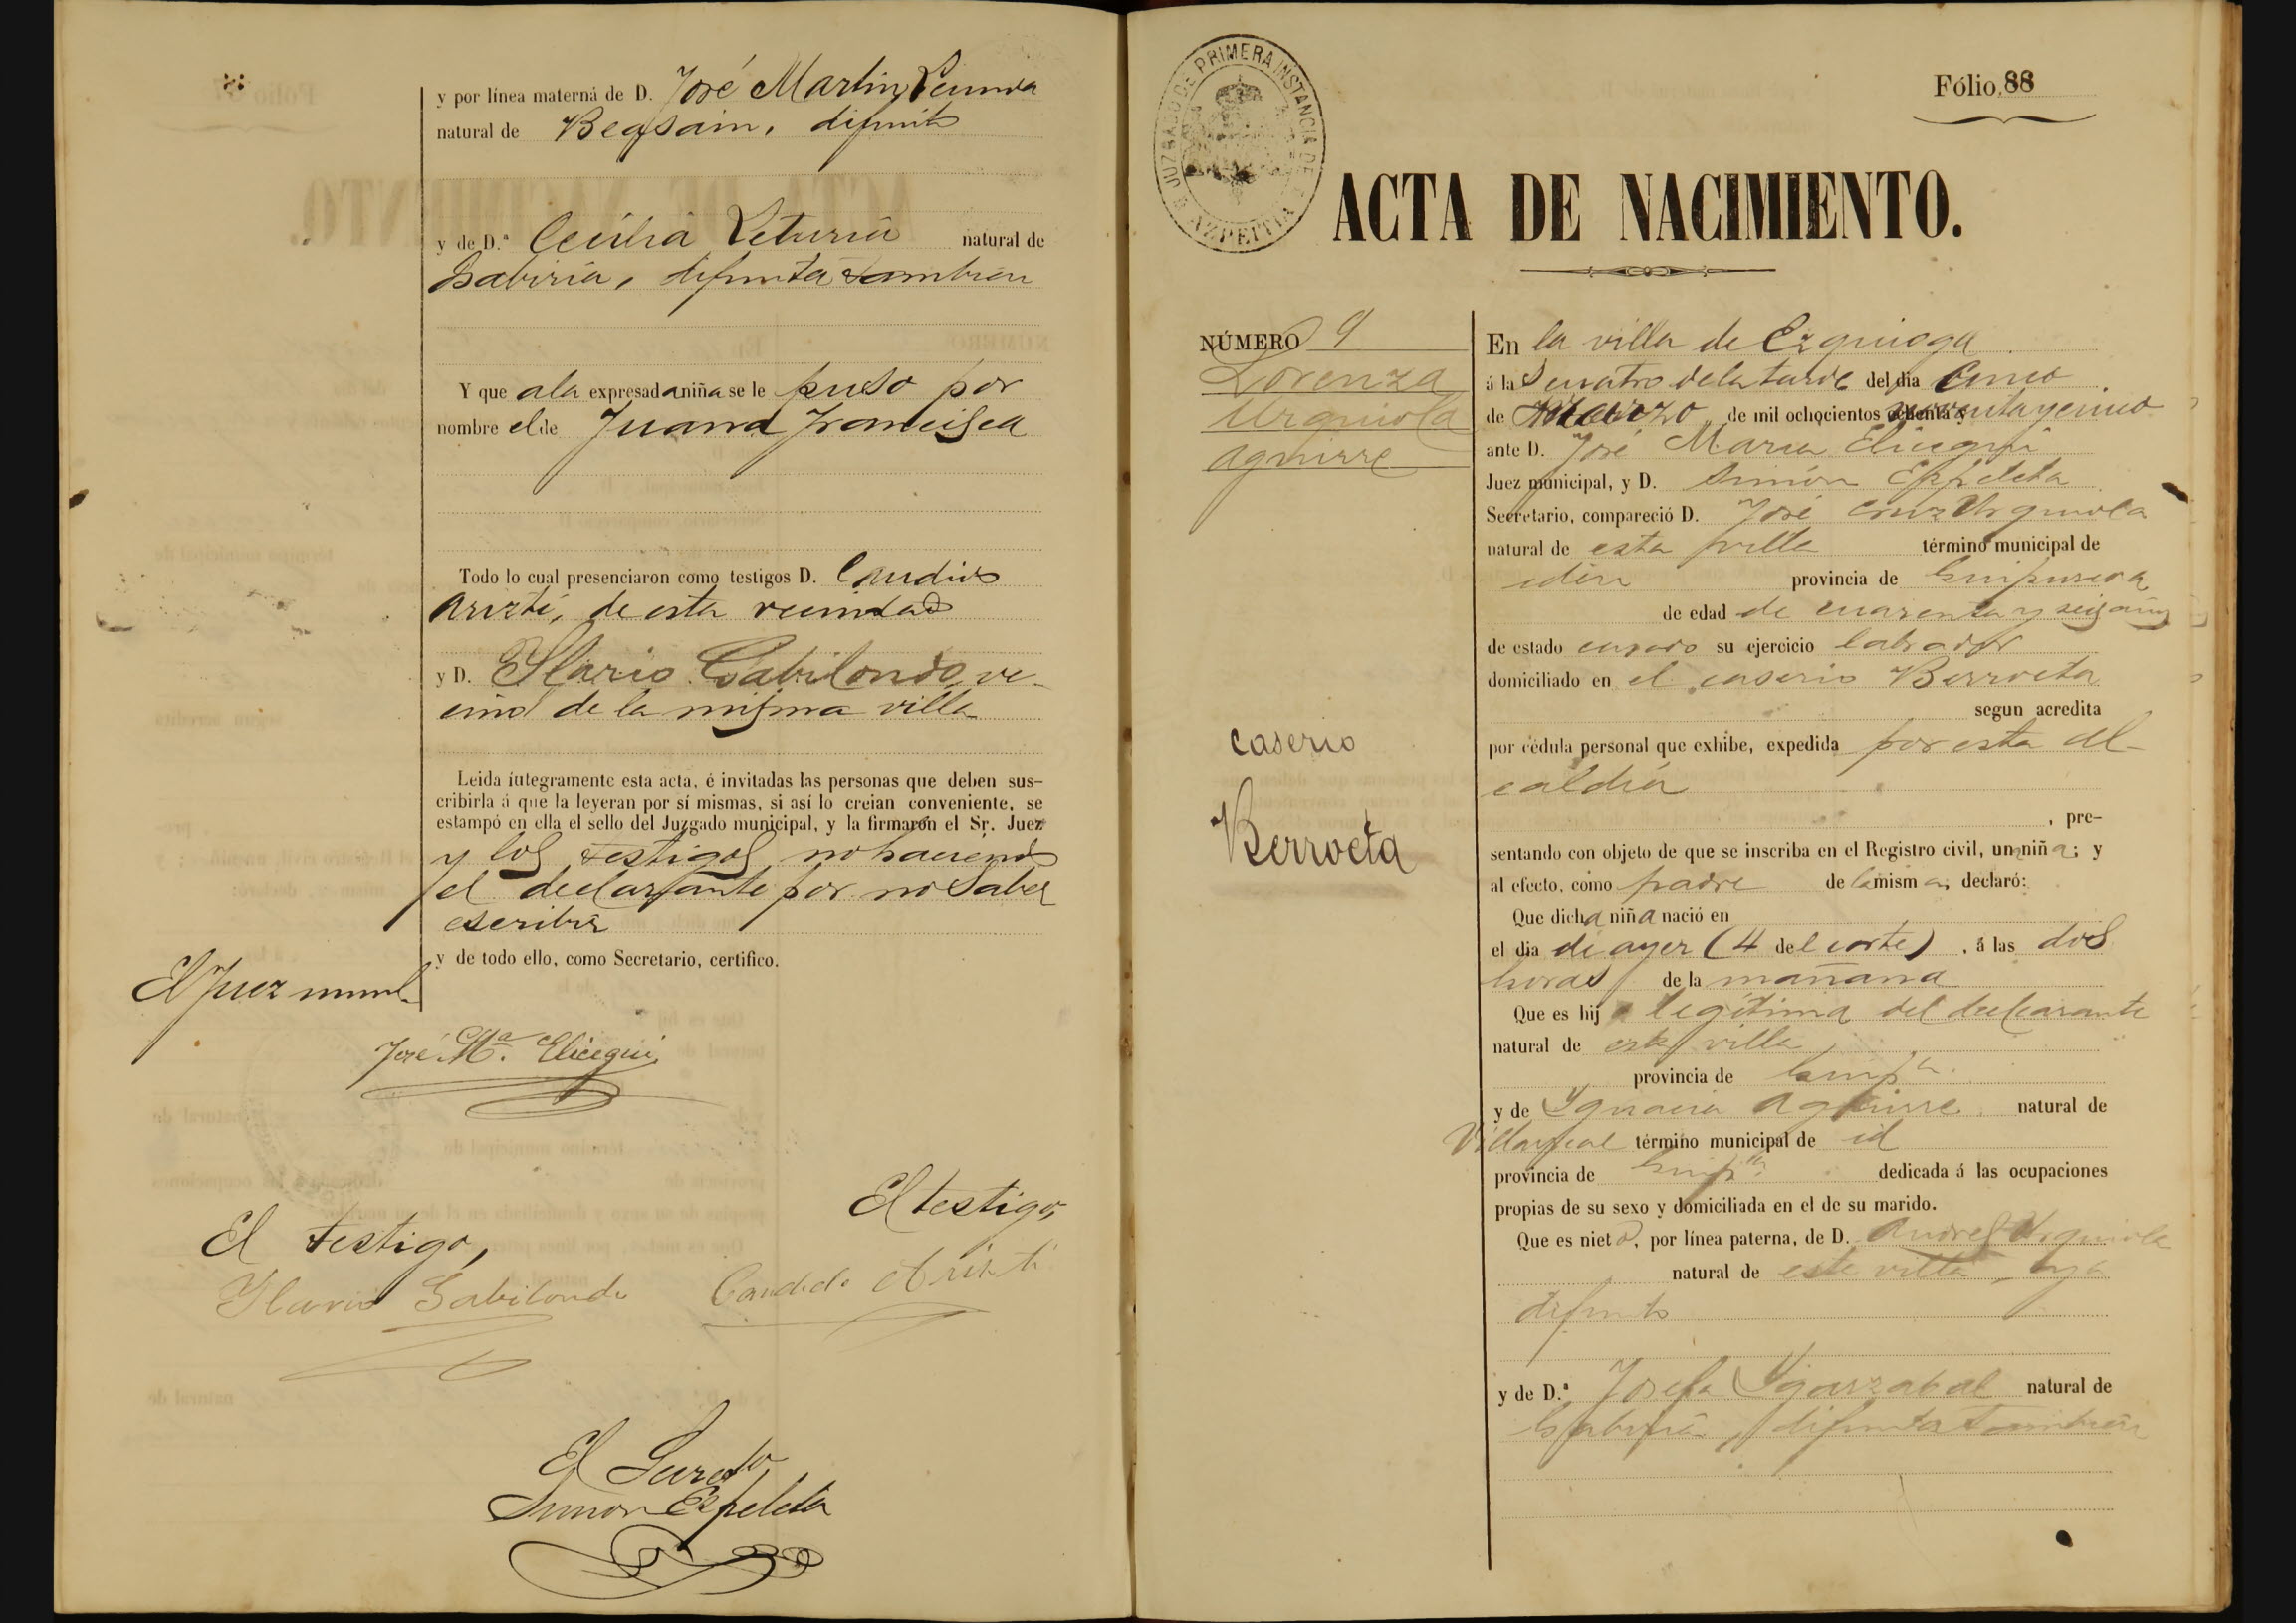 y por línea materna de D. José Martin Lecunda
natural de Beasain, difunto
y de D.ª Cecilia Leturia natural de
Gabiria, difunta tambien
Y que ala expresada niña se le puso por
nombre el de Juana Francisca
Todo lo cual presenciaron como testigos D. Candido
Arizti, de esta vecindad
y D. Ilario Gabilondo, ve-
cino de la misma villa
Leida íntegramente esta acta, é invitadas las personas que deben sus-
cribirla á que la leyeran por sí mismas, si así lo creian conveniente, se
estampó en ella el sello del Juzgado municipal, y la firmaron el Sr. Juez
y los testigos, no haciendo
el declarante por no saber
escribir
y de todo ello, como Secretario, certifico.
El Juez munl.
José Mª. Elicegui
El testigo,
El testigo,
Ilario Gabilondo
Candido Arizti
El Secretº
Simon Ezpeleta
JUZGADO DE PRIMERA INSTANCIA DE AZPEITIA
Fólio 88
ACTA DE NACIMIENTO.
NÚMERO 9
Lorenza
Urquiola
Aguirre
caserio
Berroeta
En la villa de Ezquioga
á las cuatro de la tarde del dia cinco
de Marzo de mil ochocientos ochenta y noventa y cinco
ante D. José Maria Elicegui
Juez municipal, y D. Simón Ezpeleta
Secretario, compareció D. José Cruz Urquiola
natural de esta villa término municipal de
idem provincia de Guipuzcoa
de edad de cuarenta y seis años
de estado casado su ejercicio labrador
domiciliado en el caserio Berroeta
segun acredita
por cédula personal que exhibe, expedida por esta al-
caldia
, pre-
sentando con objeto de que se inscriba en el Registro civil, una niña; y
al efecto, como padre de la misma, declaró:
Que dicha niña nació en
el dia de ayer (4 del corte) , á las dos
horas de la mañana
Que es hija legítima del declarante
natural de esta villa,
provincia de Guipª.
y de Ygnacia Aguirre natural de
Villarreal término municipal de id
provincia de Guipª. dedicada á las ocupaciones
propias de su sexo y domiciliada en el de su marido.
Que es nieta, por línea paterna, de D. Andres Urquiola
natural de esta villa, ya
difunto
y de D.ª Josefa Ygarzabal natural de
Gabiria, difunta tambien